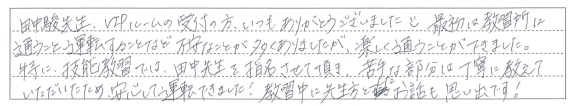 田中駿先生、VIPルームの受付の方、いつもありがとうございました 最初は教習所に
通うこと、運転することなど不安なことが多くありましたが、楽しく通うことができました。
特に、技能教習では、田中先生を指名させて頂き、苦手な部分は丁寧に教えて
いただいたため、安心して運転できました！教習中に先生方とお話も思い出です！